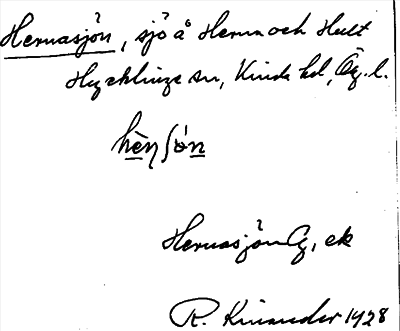 Hernasjön, sjö å Herna och Hult
Hycklinge sn, Kinda hd, Ög. l.
Hernasjön Ög, ek
R. Kinander 1928